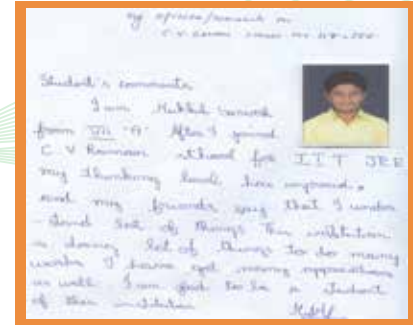 my opinion/comment on
C.V. Raman
Student's comments
I am
from VII "A" After I joined
C V Raman school for IIT JEE
my thinking level has improved.
and my friends say that I under
-stand lot of things This institution
is doing lot of things to do many
works I have got many
as well I am glad to be a student
of this institution